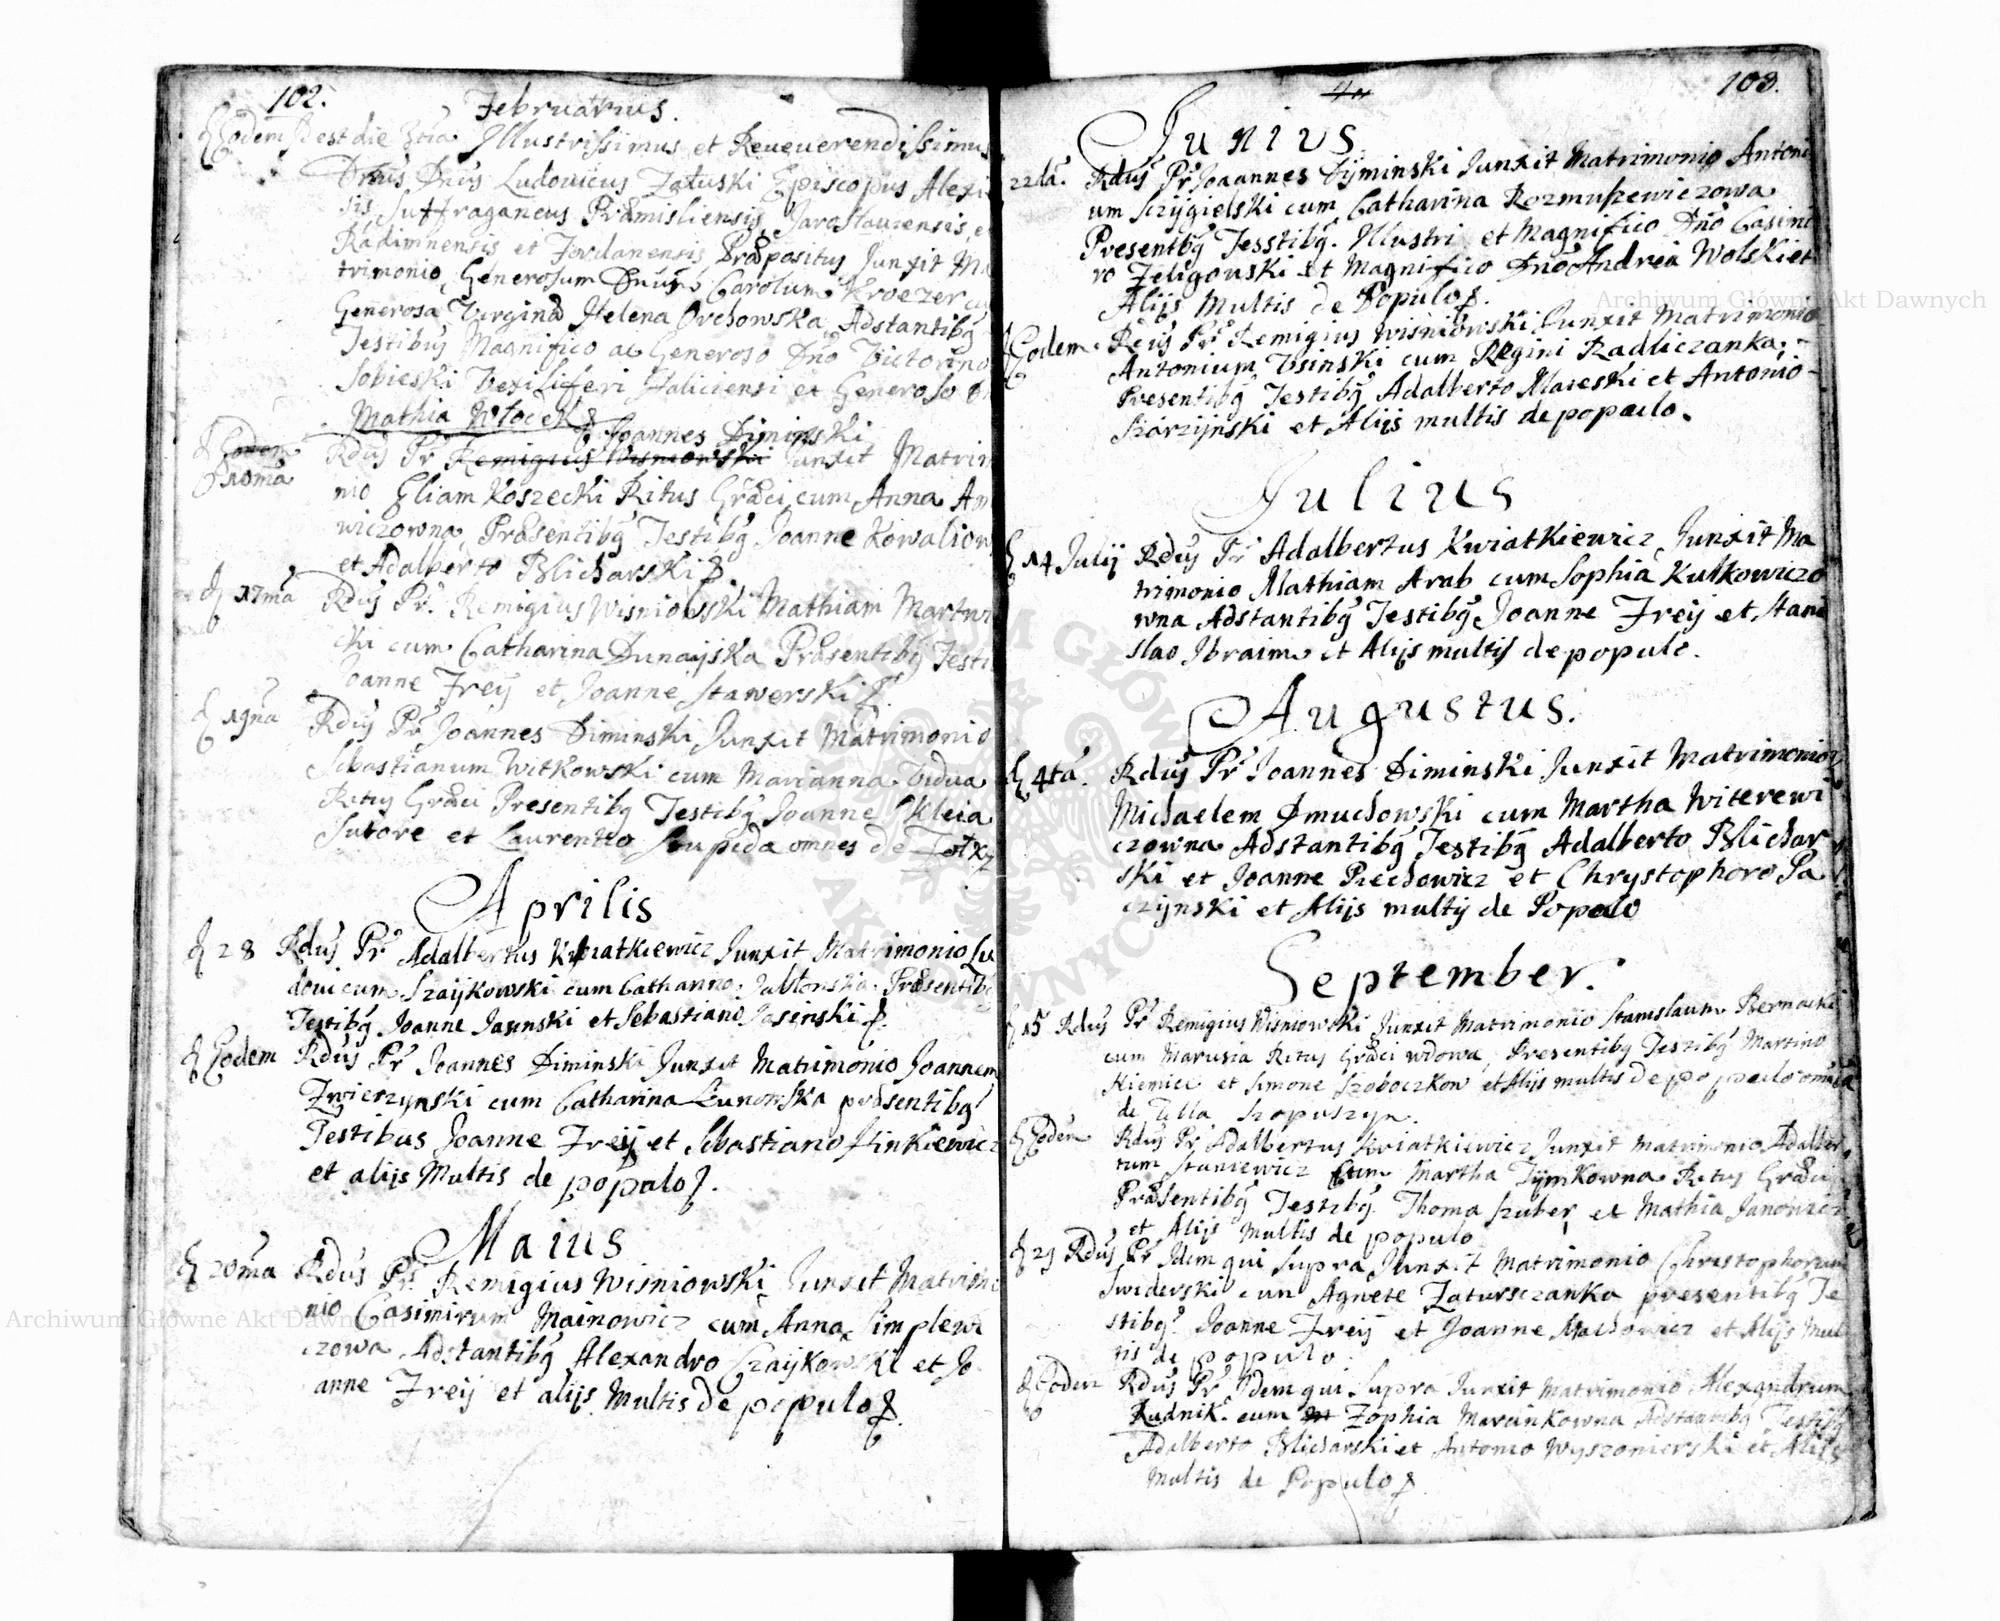 102.
Februarius.
Eodem est die 3tia Illustrissimus et Reueuerendissimus
Dnus Dnus Ludouicus Załuski Episcopus Alexi
sis, Suffraganeus Præmisliensis, Jaroslauiensis, e
Radimnensis et Præpositus Junxit Ma
trimonio, Generosum Dnum Carolum Kroezer cu
Generosa Virgina Helena Orchowska, Adstantibg
Testibus Magnifico ac Generoso Dno Victorino
Sobieski Vexiliferi Haliciensi et Generoso D
Mathia Włoček
Joannes Diminski
Eodem
Rdus Pr Remigius Wisniowski Junxit Matrim
10ma
nio Eliam Koszecki Ritus Græci cum Anna An
wiczowna, Præsentibg Testibg Joanne Kowaliow
et Adalberto Blicharski
17ma Rdus Pr. Remigius Wisniowski Mathiam Martwi
cki cum Catharina Dunayska Præsentibg Testi
Joanne Freij et Joanne Stawerski
19na Rdus Pr Joannes Diminski Junxit Matrimonio
Sebastianum Witkowski cum Marianna Vidua
Ritus Græci Presentibg Testibg Joanne Kleia
Sutore et Laurentio Stupida omnes de
Aprilis
28 Rdus Pr Adalbertus Kwiatkiewicz Junxit Matrimonio Lu
douicum Szaijkowski cum Catharina Jabłonska Præsentibg
Testibg. Joanne Jasinski et Sebastiano Jasinski
Eodem Rdus Pr Joannes Diminski Junxit Matrimonio Joannem
Zwierzynski cum Catharina Lunowska præsentibg
Testibus Joanne Freij et Sebastiano Hinkiewicz
et alijs Multis de populo
Maius
20ma Rdus Pr. Remigius Wisniowski Junxit Matrimo
nio Casimirum Mainowicz cum Anna Simplewi
czowa Adstantibg Alexandro Szaijkowski et Jo
anne Freij et alijs Multis de populo
103.
Junius
22da. Rdus Pr Joaannes Dyminski Junxit Matrimonio Antoni
um Sczijgielski cum Catharina Rozmuszewiczowa
Presentbg Tesstibg. Illustri et Magnifico Dno Casimi
ro Zeligowski et Magnifico Dno Andrea Wolski et
Alijs Multis de Populo
Eodem. Rdus Pr Remigius Wisniowski Junxit Matrimonio
Antonium Usinski cum Regini Radliczanka.
Presentibg Testibg Adalberto Maieski et Antonio
Skorzijnski et Alijs multis de populo.
Julius
14 Julij Rdus Pr Adalbertus Kwiatkiewicz Junxit Ma
trimonio Mathiam Arab cum Sophia Kulkowiczo
wna Adstantibg Testibg Joanne Freij et Stani
slao Ibraim et Alijs multis de populo.
Augustus.
4ta. Rdus Pr Joannes Diminski Junxit Matrimonio
Michaelem Dmuchowski cum Martha Witerewi
czowna Adstantibg Testibg Adalberto Blichar
ski et Joanne Piechowicz et Chrystophoro Pa
czijnski et Alijs multij de Populo
September.
15 Rdus Pr Remigius Wisniowski Junxit Matrimonio Stanislaum Bernacki
cum Marusia Ritus Græci wdowa, Presentibg Testibg Martino
Kiemicz et Simone Szoboczkow et Alijs multis de populo omnes
de Villa Szopuszyn.
Eodem Rdus Pr Adalbertus Kwiatkiewicz Junxit matrimonio Adalber
tum Staniewicz Cum Martha Tymkowna Ritus Græci
Præsentibg Testibg. Thoma Szuber et Mathia Janowicz
et Alijs Multis de populo
29 Rdus Pr Idem qui Supra Junxit Matrimonio Christophorum
Swiderski cun Agnete Zatursczanka presentibg Te
stibg. Joanne Freij et Joanne Machowicz et Alijs Mul
tis de populo.
Eodem Rdus Pr Idem qui Supra Junxit Matrimonio Alexandrum
Rudnik cum Zophia Marcinkowna Adstantibg Testibg
Adalberto Blicharski et Antonio Wyszomierski et Alijs
Multis de Populo
Archiwum Główne Akt Dawnych
Archiwum Główne Akt Dawnych